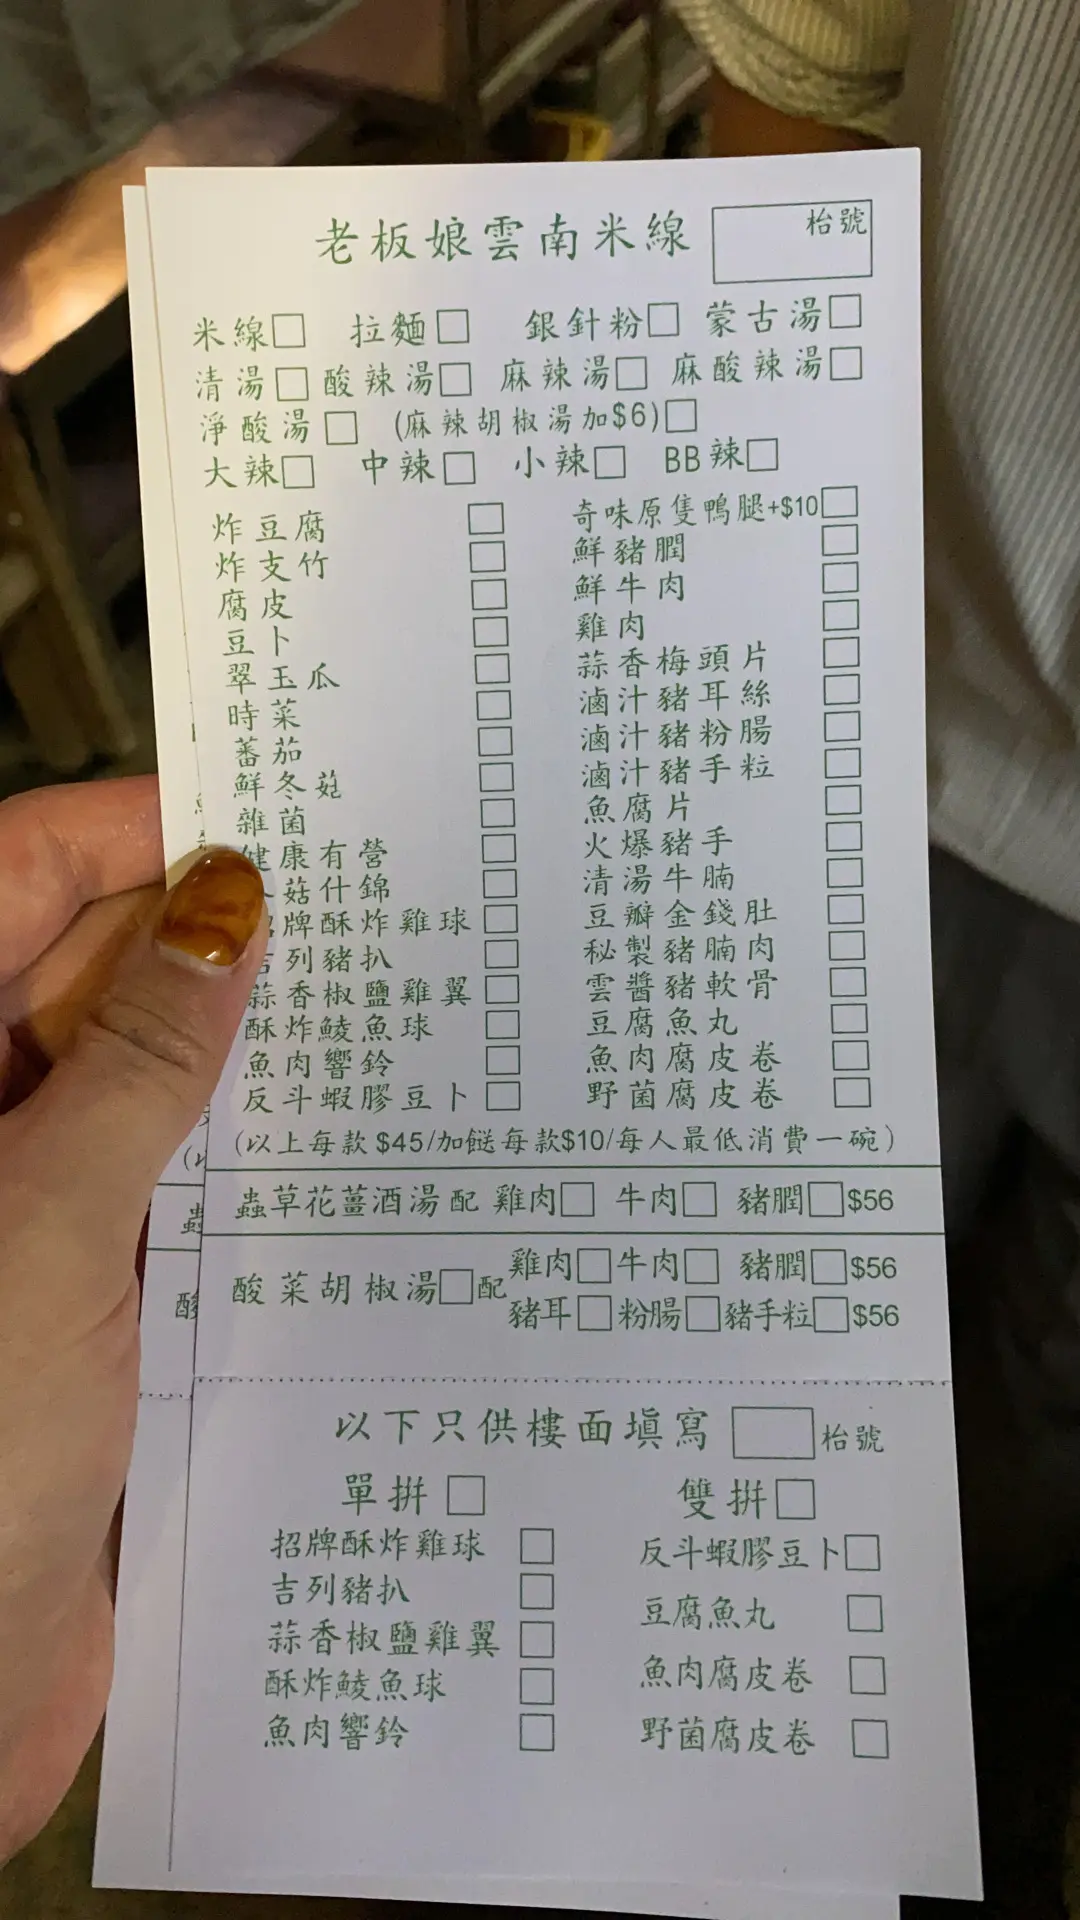 老板娘雲南米線
枱號
米線 拉麵 銀針粉 蒙古湯
清湯 酸辣湯 麻辣湯 麻酸辣湯
淨酸湯 (麻辣胡椒湯加$6)
大辣 中辣 小辣 BB辣
炸豆腐
炸支竹
腐皮
豆卜
翠玉瓜
時菜
蕃茄
鮮冬菇
雜菌
健康有營
菇什錦
招牌酥炸雞球
吉列豬扒
蒜香椒鹽雞翼
酥炸鯪魚球
魚肉響鈴
反斗蝦膠豆卜
奇味原隻鴨腿+$10
鮮豬膶
鮮牛肉
雞肉
蒜香梅頭片
滷汁豬耳絲
滷汁豬粉腸
滷汁豬手粒
魚腐片
火爆豬手
清湯牛腩
豆瓣金錢肚
秘製豬腩肉
雲醬豬軟骨
豆腐魚丸
魚肉腐皮卷
野菌腐皮卷
(以上每款$45/加餸每款$10/每人最低消費一碗)
蟲草花薑酒湯配 雞肉 牛肉 豬膶 $56
酸菜胡椒湯 配
雞肉 牛肉 豬膶 $56
豬耳 粉腸 豬手粒 $56
以下只供樓面填寫 枱號
單拼 雙拼
招牌酥炸雞球
吉列豬扒
蒜香椒鹽雞翼
酥炸鯪魚球
魚肉響鈴
反斗蝦膠豆卜
豆腐魚丸
魚肉腐皮卷
野菌腐皮卷